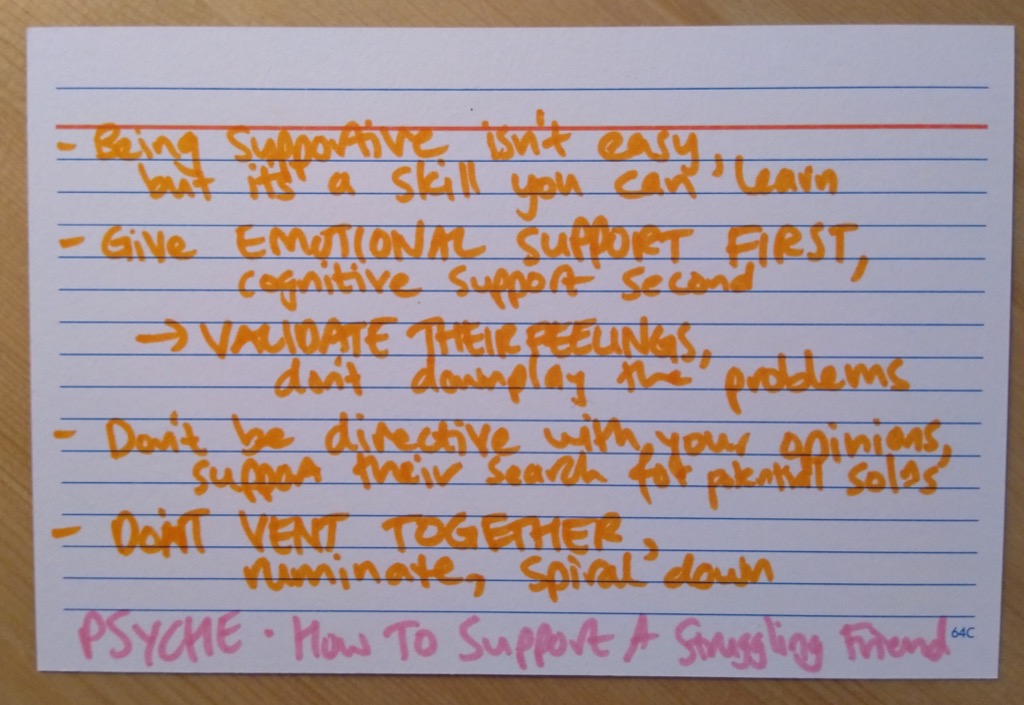 - Being supportive isn't easy,
but it's a skill you can learn
- Give EMOTIONAL SUPPORT FIRST,
cognitive support second
→ VALIDATE THEIR FEELINGS,
don't downplay the problems
- Don't be directive with your opinions,
support their search for potential sol⁰s
- DON'T VENT TOGETHER,
ruminate, spiral down
PSYCHE · How To Support A Struggling Friend
64C